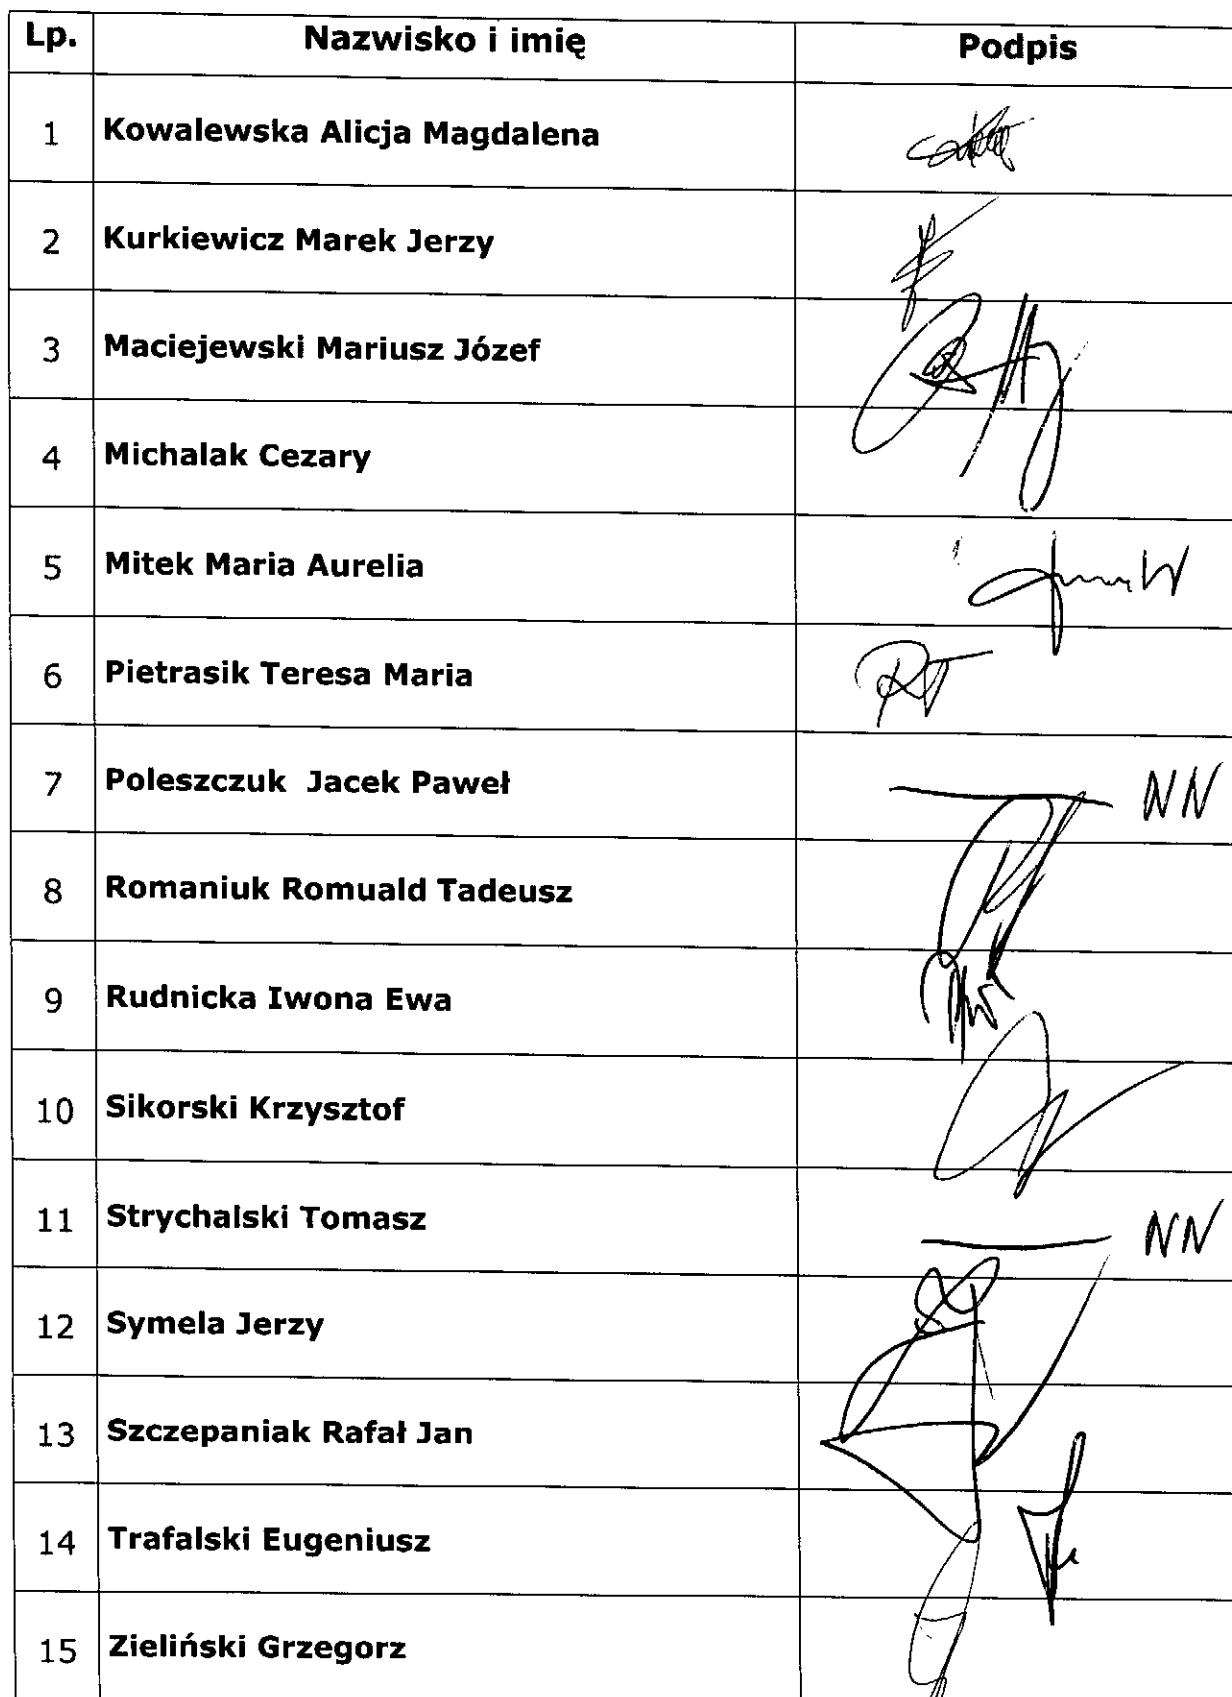 Lp. Nazwisko i imię Podpis
1 Kowalewska Alicja Magdalena
2 Kurkiewicz Marek Jerzy
3 Maciejewski Mariusz Józef
4 Michalak Cezary
5 Mitek Maria Aurelia
6 Pietrasik Teresa Maria
7 Poleszczuk Jacek Paweł NN
8 Romaniuk Romuald Tadeusz
9 Rudnicka Iwona Ewa
10 Sikorski Krzysztof
11 Strychalski Tomasz NN
12 Symela Jerzy
13 Szczepaniak Rafał Jan
14 Trafalski Eugeniusz
15 Zieliński Grzegorz